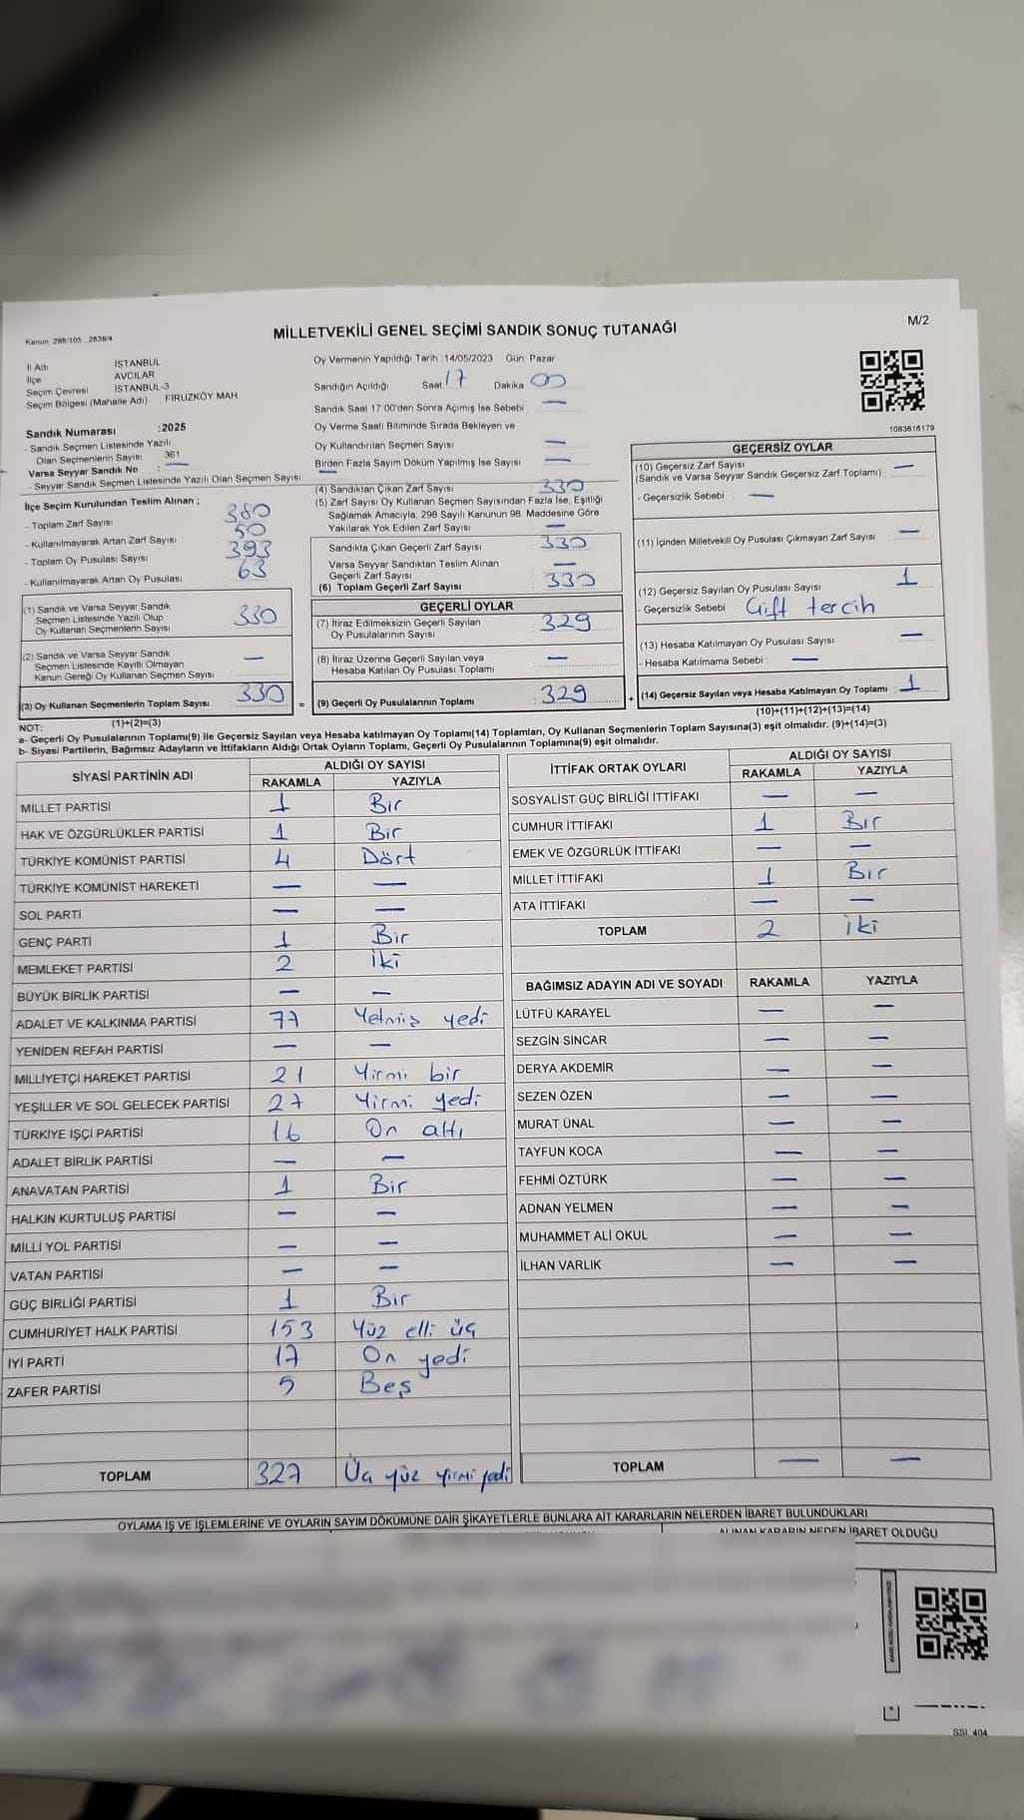 M/2
Kanun: 298/105 , 2839/4
MİLLETVEKİLİ GENEL SEÇİMİ SANDIK SONUÇ TUTANAĞI
İl Adı İSTANBUL
İlçe AVCILAR
Seçim Çevresi İSTANBUL-3
Seçim Bölgesi (Mahalle Adı) FİRUZKÖY MAH
Sandık Numarası :2025
- Sandık Seçmen Listesinde Yazılı
Olan Seçmenlerin Sayısı 361
Varsa Seyyar Sandık No : —
- Seyyar Sandık Seçmen Listesinde Yazılı Olan Seçmen Sayısı: —
Oy Vermenin Yapıldığı Tarih :14/05/2023 Gün Pazar
Sandığın Açıldığı Saat 17 Dakika 00
Sandık Saat 17:00'den Sonra Açılmış İse Sebebi —
Oy Verme Saati Bitiminde Sırada Bekleyen ve
Oy Kullandırılan Seçmen Sayısı —
Birden Fazla Sayım Döküm Yapılmış İse Sayısı —
1083616179
İlçe Seçim Kurulundan Teslim Alınan ;
- Toplam Zarf Sayısı 380
- Kullanılmayarak Artan Zarf Sayısı 50
- Toplam Oy Pusulası Sayısı 393
- Kullanılmayarak Artan Oy Pusulası 63
(1) Sandık ve Varsa Seyyar Sandık
Seçmen Listesinde Yazılı Olup
Oy Kullanan Seçmenlerin Sayısı 330
(2) Sandık ve Varsa Seyyar Sandık
Seçmen Listesinde Kayıtlı Olmayan
Kanun Gereği Oy Kullanan Seçmen Sayısı —
(3) Oy Kullanan Seçmenlerin Toplam Sayısı 330
(1)+(2)=(3)
(4) Sandıktan Çıkan Zarf Sayısı 330
(5) Zarf Sayısı Oy Kullanan Seçmen Sayısından Fazla İse, Eşitliği
Sağlamak Amacıyla, 298 Sayılı Kanunun 98. Maddesine Göre
Yakılarak Yok Edilen Zarf Sayısı —
Sandıkta Çıkan Geçerli Zarf Sayısı 330
Varsa Seyyar Sandıktan Teslim Alınan
Geçerli Zarf Sayısı —
(6) Toplam Geçerli Zarf Sayısı 330
GEÇERLİ OYLAR
(7) İtiraz Edilmeksizin Geçerli Sayılan
Oy Pusulalarının Sayısı 329
(8) İtiraz Üzerine Geçerli Sayılan veya
Hesaba Katılan Oy Pusulası Toplamı —
= (9) Geçerli Oy Pusulalarının Toplamı 329
GEÇERSİZ OYLAR
(10) Geçersiz Zarf Sayısı
(Sandık ve Varsa Seyyar Sandık Geçersiz Zarf Toplamı) —
- Geçersizlik Sebebi —
(11) İçinden Milletvekili Oy Pusulası Çıkmayan Zarf Sayısı —
(12) Geçersiz Sayılan Oy Pusulası Sayısı 1
- Geçersizlik Sebebi Çift tercih
(13) Hesaba Katılmayan Oy Pusulası Sayısı —
- Hesaba Katılmama Sebebi : —
+ (14) Geçersiz Sayılan veya Hesaba Katılmayan Oy Toplamı 1
(10)+(11)+(12)+(13)=(14)
NOT:
a- Geçerli Oy Pusulalarının Toplamı(9) ile Geçersiz Sayılan veya Hesaba katılmayan Oy Toplamı(14) Toplamları, Oy Kullanan Seçmenlerin Toplam Sayısına(3) eşit olmalıdır. (9)+(14)=(3)
b- Siyasi Partilerin, Bağımsız Adayların ve İttifakların Aldığı Ortak Oyların Toplamı, Geçerli Oy Pusulalarının Toplamına(9) eşit olmalıdır.
SİYASİ PARTİNİN ADI ALDIĞI OY SAYISI
RAKAMLA YAZIYLA
MİLLET PARTİSİ 1 Bir
HAK VE ÖZGÜRLÜKLER PARTİSİ 1 Bir
TÜRKİYE KOMÜNİST PARTİSİ 4 Dört
TÜRKİYE KOMÜNİST HAREKETİ — —
SOL PARTİ — —
GENÇ PARTİ 1 Bir
MEMLEKET PARTİSİ 2 İki
BÜYÜK BİRLİK PARTİSİ — —
ADALET VE KALKINMA PARTİSİ 77 Yetmiş yedi
YENİDEN REFAH PARTİSİ — —
MİLLİYETÇİ HAREKET PARTİSİ 21 Yirmi bir
YEŞİLLER VE SOL GELECEK PARTİSİ 27 Yirmi yedi
TÜRKİYE İŞÇİ PARTİSİ 16 On altı
ADALET BİRLİK PARTİSİ — —
ANAVATAN PARTİSİ 1 Bir
HALKIN KURTULUŞ PARTİSİ — —
MİLLİ YOL PARTİSİ — —
VATAN PARTİSİ — —
GÜÇ BİRLİĞİ PARTİSİ 1 Bir
CUMHURİYET HALK PARTİSİ 153 Yüz elli üç
İYİ PARTİ 17 On yedi
ZAFER PARTİSİ 5 Beş
TOPLAM 327 Üç yüz yirmi yedi
İTTİFAK ORTAK OYLARI ALDIĞI OY SAYISI
RAKAMLA YAZIYLA
SOSYALİST GÜÇ BİRLİĞİ İTTİFAKI — —
CUMHUR İTTİFAKI 1 Bir
EMEK VE ÖZGÜRLÜK İTTİFAKI — —
MİLLET İTTİFAKI 1 Bir
ATA İTTİFAKI — —
TOPLAM 2 İki
BAĞIMSIZ ADAYIN ADI VE SOYADI RAKAMLA YAZIYLA
LÜTFÜ KARAYEL — —
SEZGİN SİNCAR — —
DERYA AKDEMİR — —
SEZEN ÖZEN — —
MURAT ÜNAL — —
TAYFUN KOCA — —
FEHMİ ÖZTÜRK — —
ADNAN YELMEN — —
MUHAMMET ALİ OKUL — —
İLHAN VARLIK — —
TOPLAM — —
OYLAMA İŞ VE İŞLEMLERİNE VE OYLARIN SAYIM DÖKÜMÜNE DAİR ŞİKAYETLERLE BUNLARA AİT KARARLARIN NELERDEN İBARET BULUNDUKLARI
ALINAN KARARIN NEDEN İBARET OLDUĞU
SSI_404